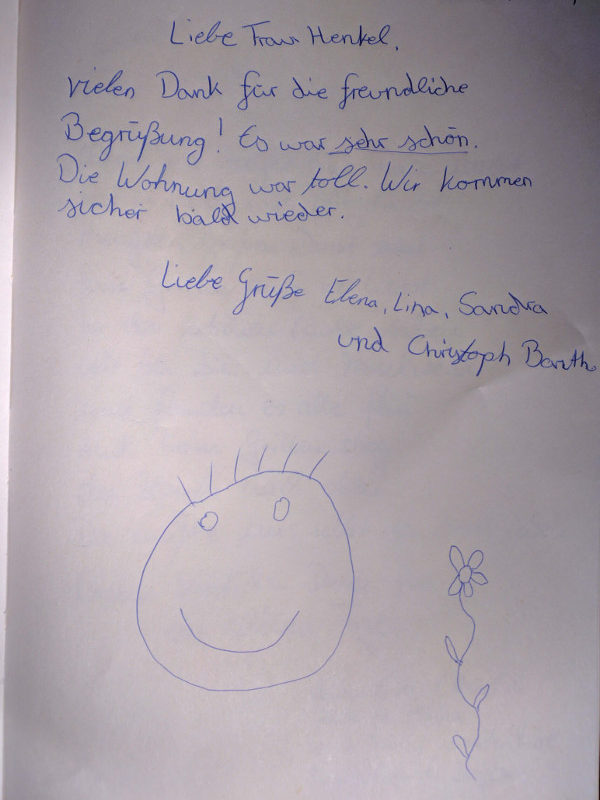 Liebe Frau Henkel,
vielen Dank für die freundliche
Begrüßung! Es war sehr schön.
Die Wohnung war toll. Wir kommen
sicher bald wieder.
Liebe Grüße Elena, Lina, Sandra
und Christoph Barnth